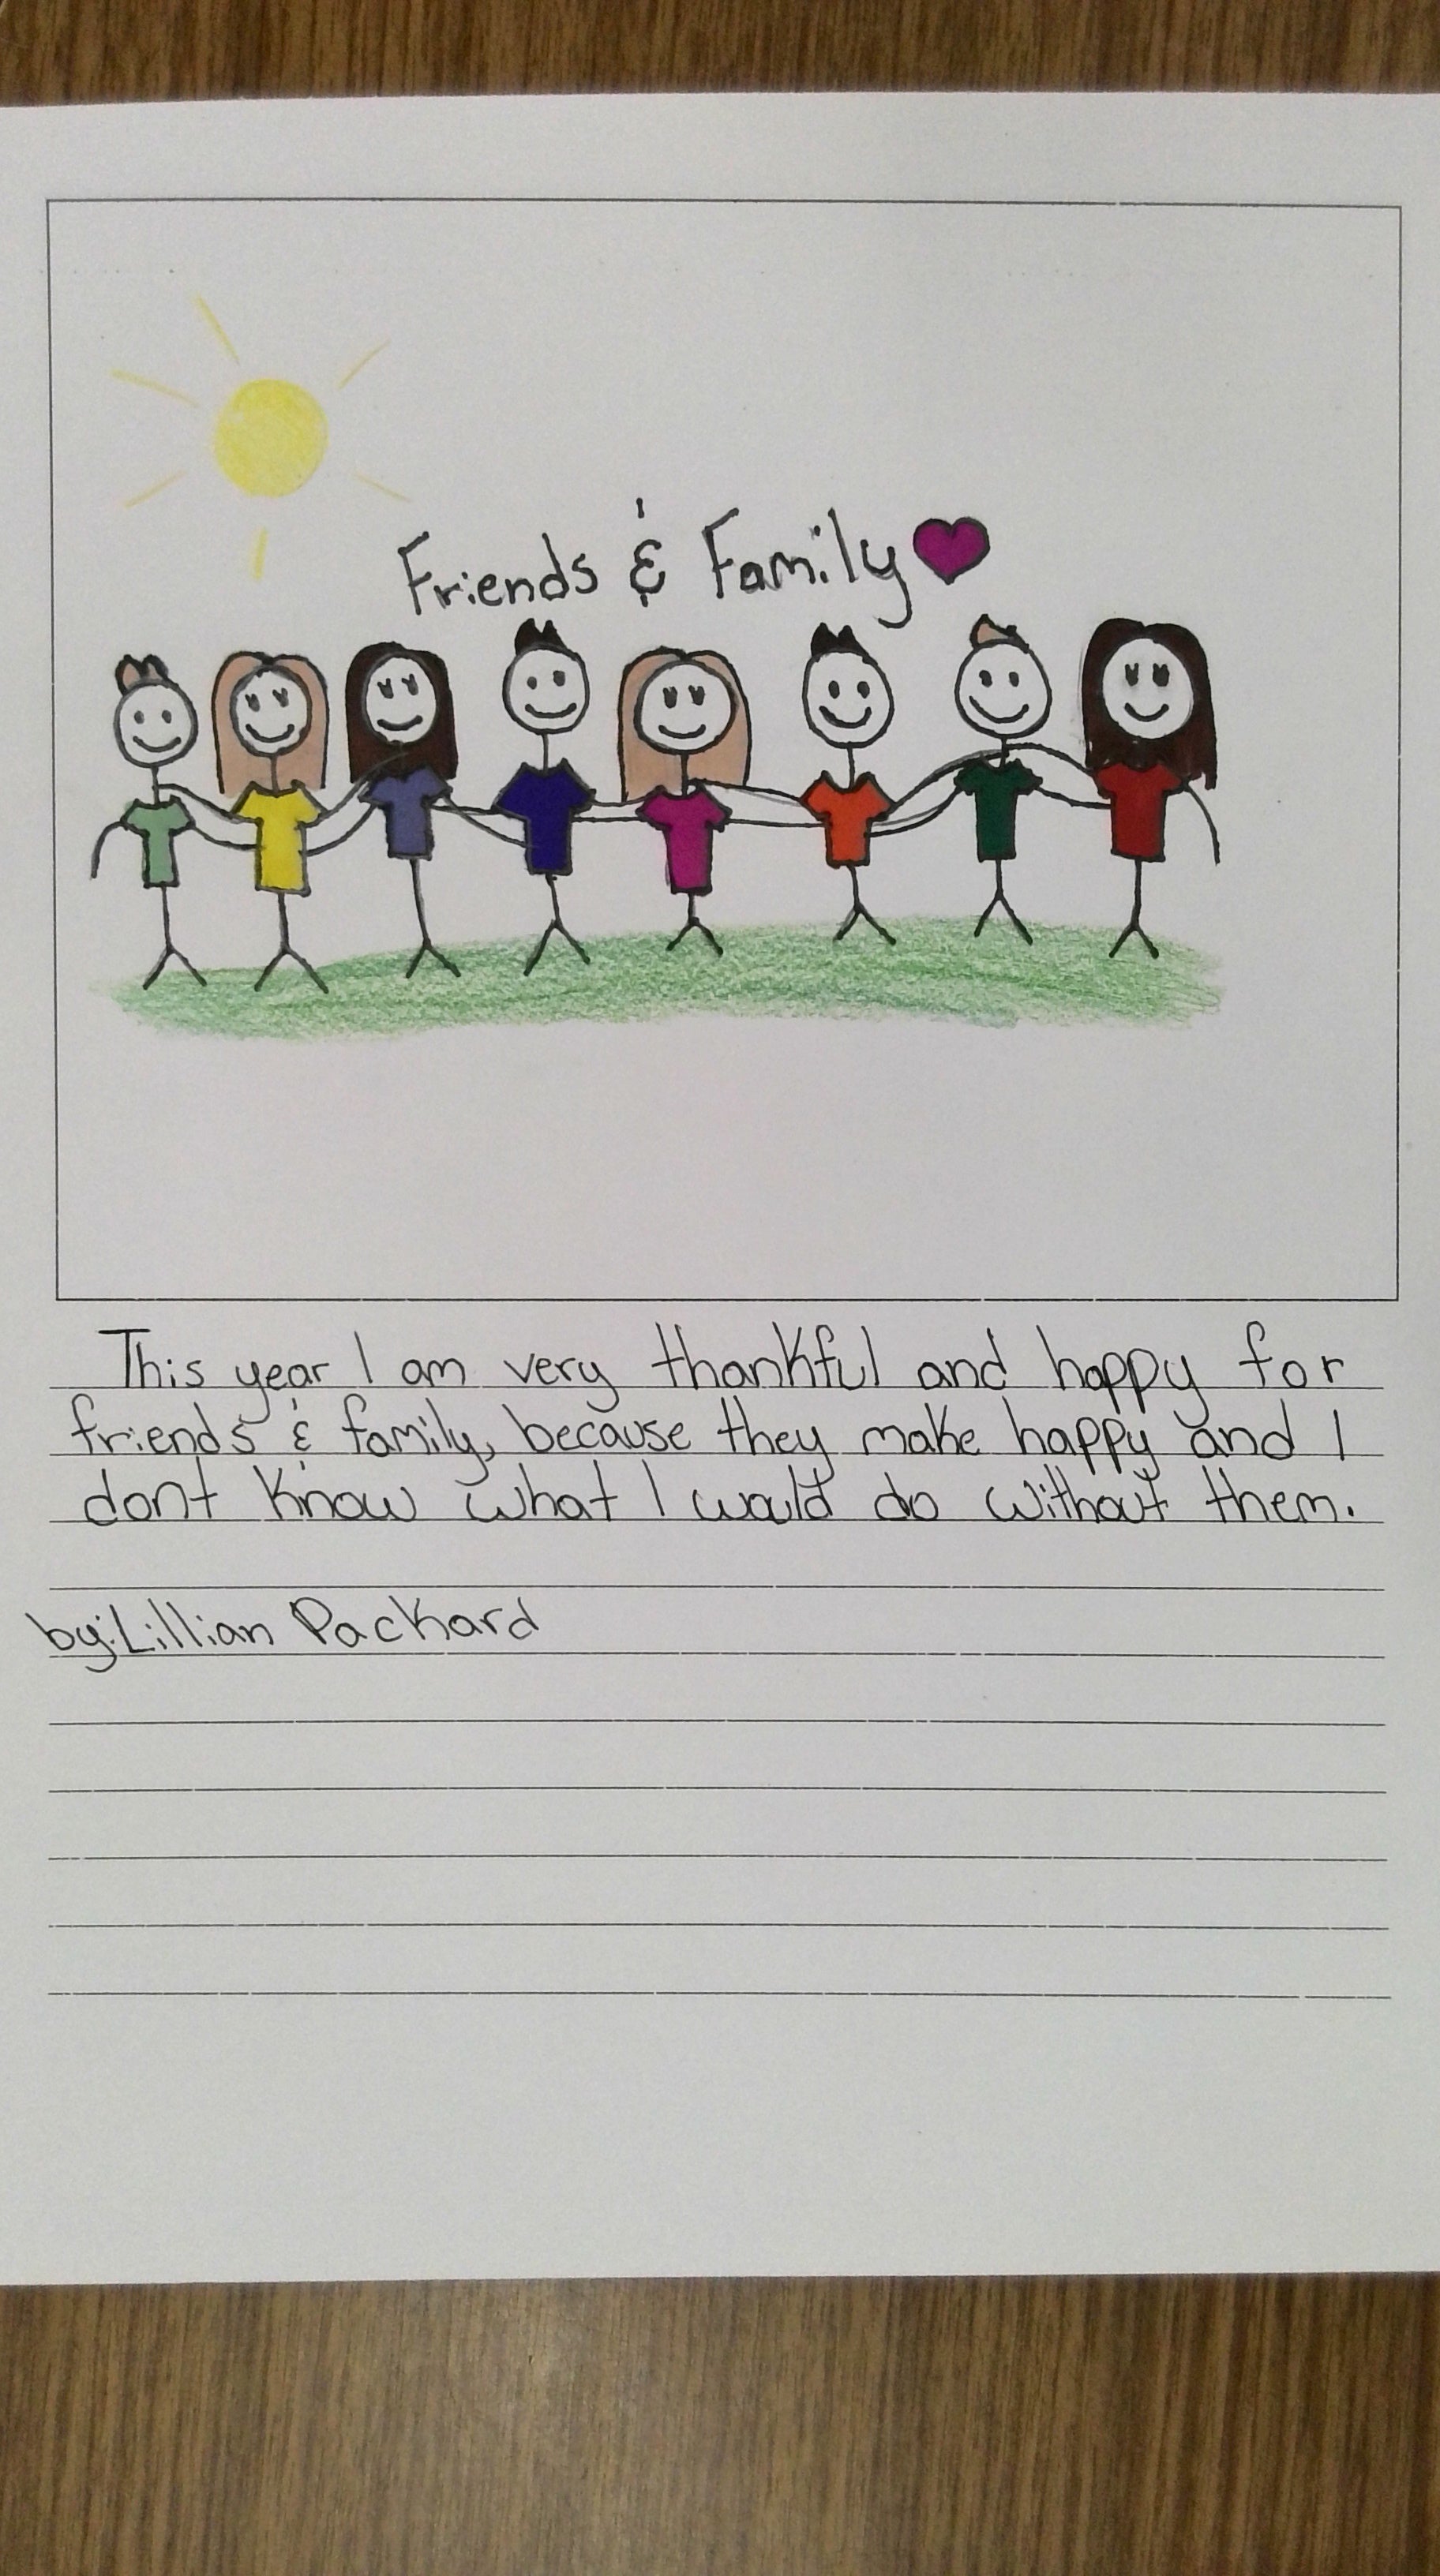 Friends & Family
This year I am very thankful and happy for
friends & family, because they make happy and I
dont know what I would do without them.
by: Lillian Packard